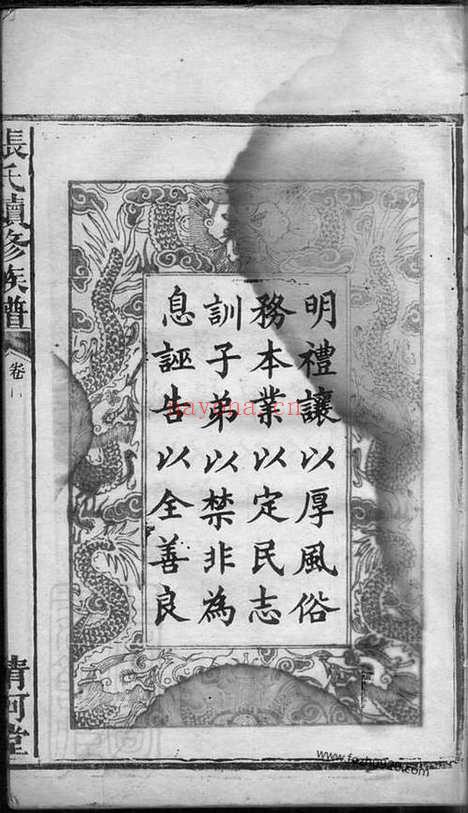 明禮讓以厚風俗
務本業以定民志
訓子弟以禁非為
息誣告以全善良
張氏續修族譜
卷
清河堂
nayona.cn
www.fozhouzo.com